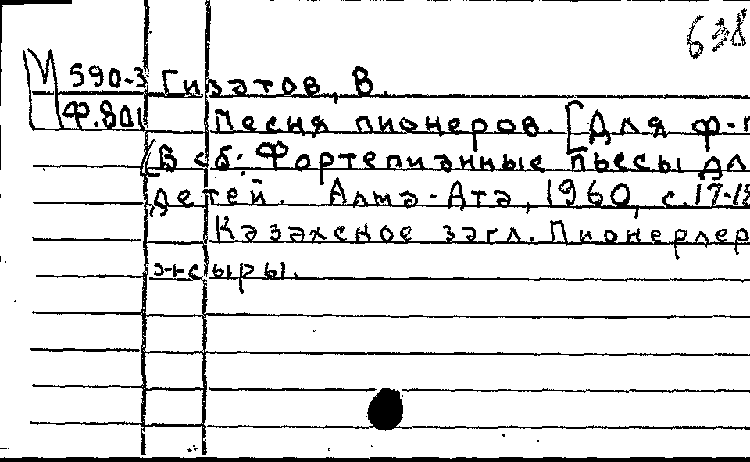 638
М 590-3 Гизатов, В.
Ф.801 Песня пионеров. [Для ф-п
(В сб: Фортепианные пьесы дл
детей. Алма-Ата, 1960, с.17-18
Казахское загл. Пионерлер
жыры.